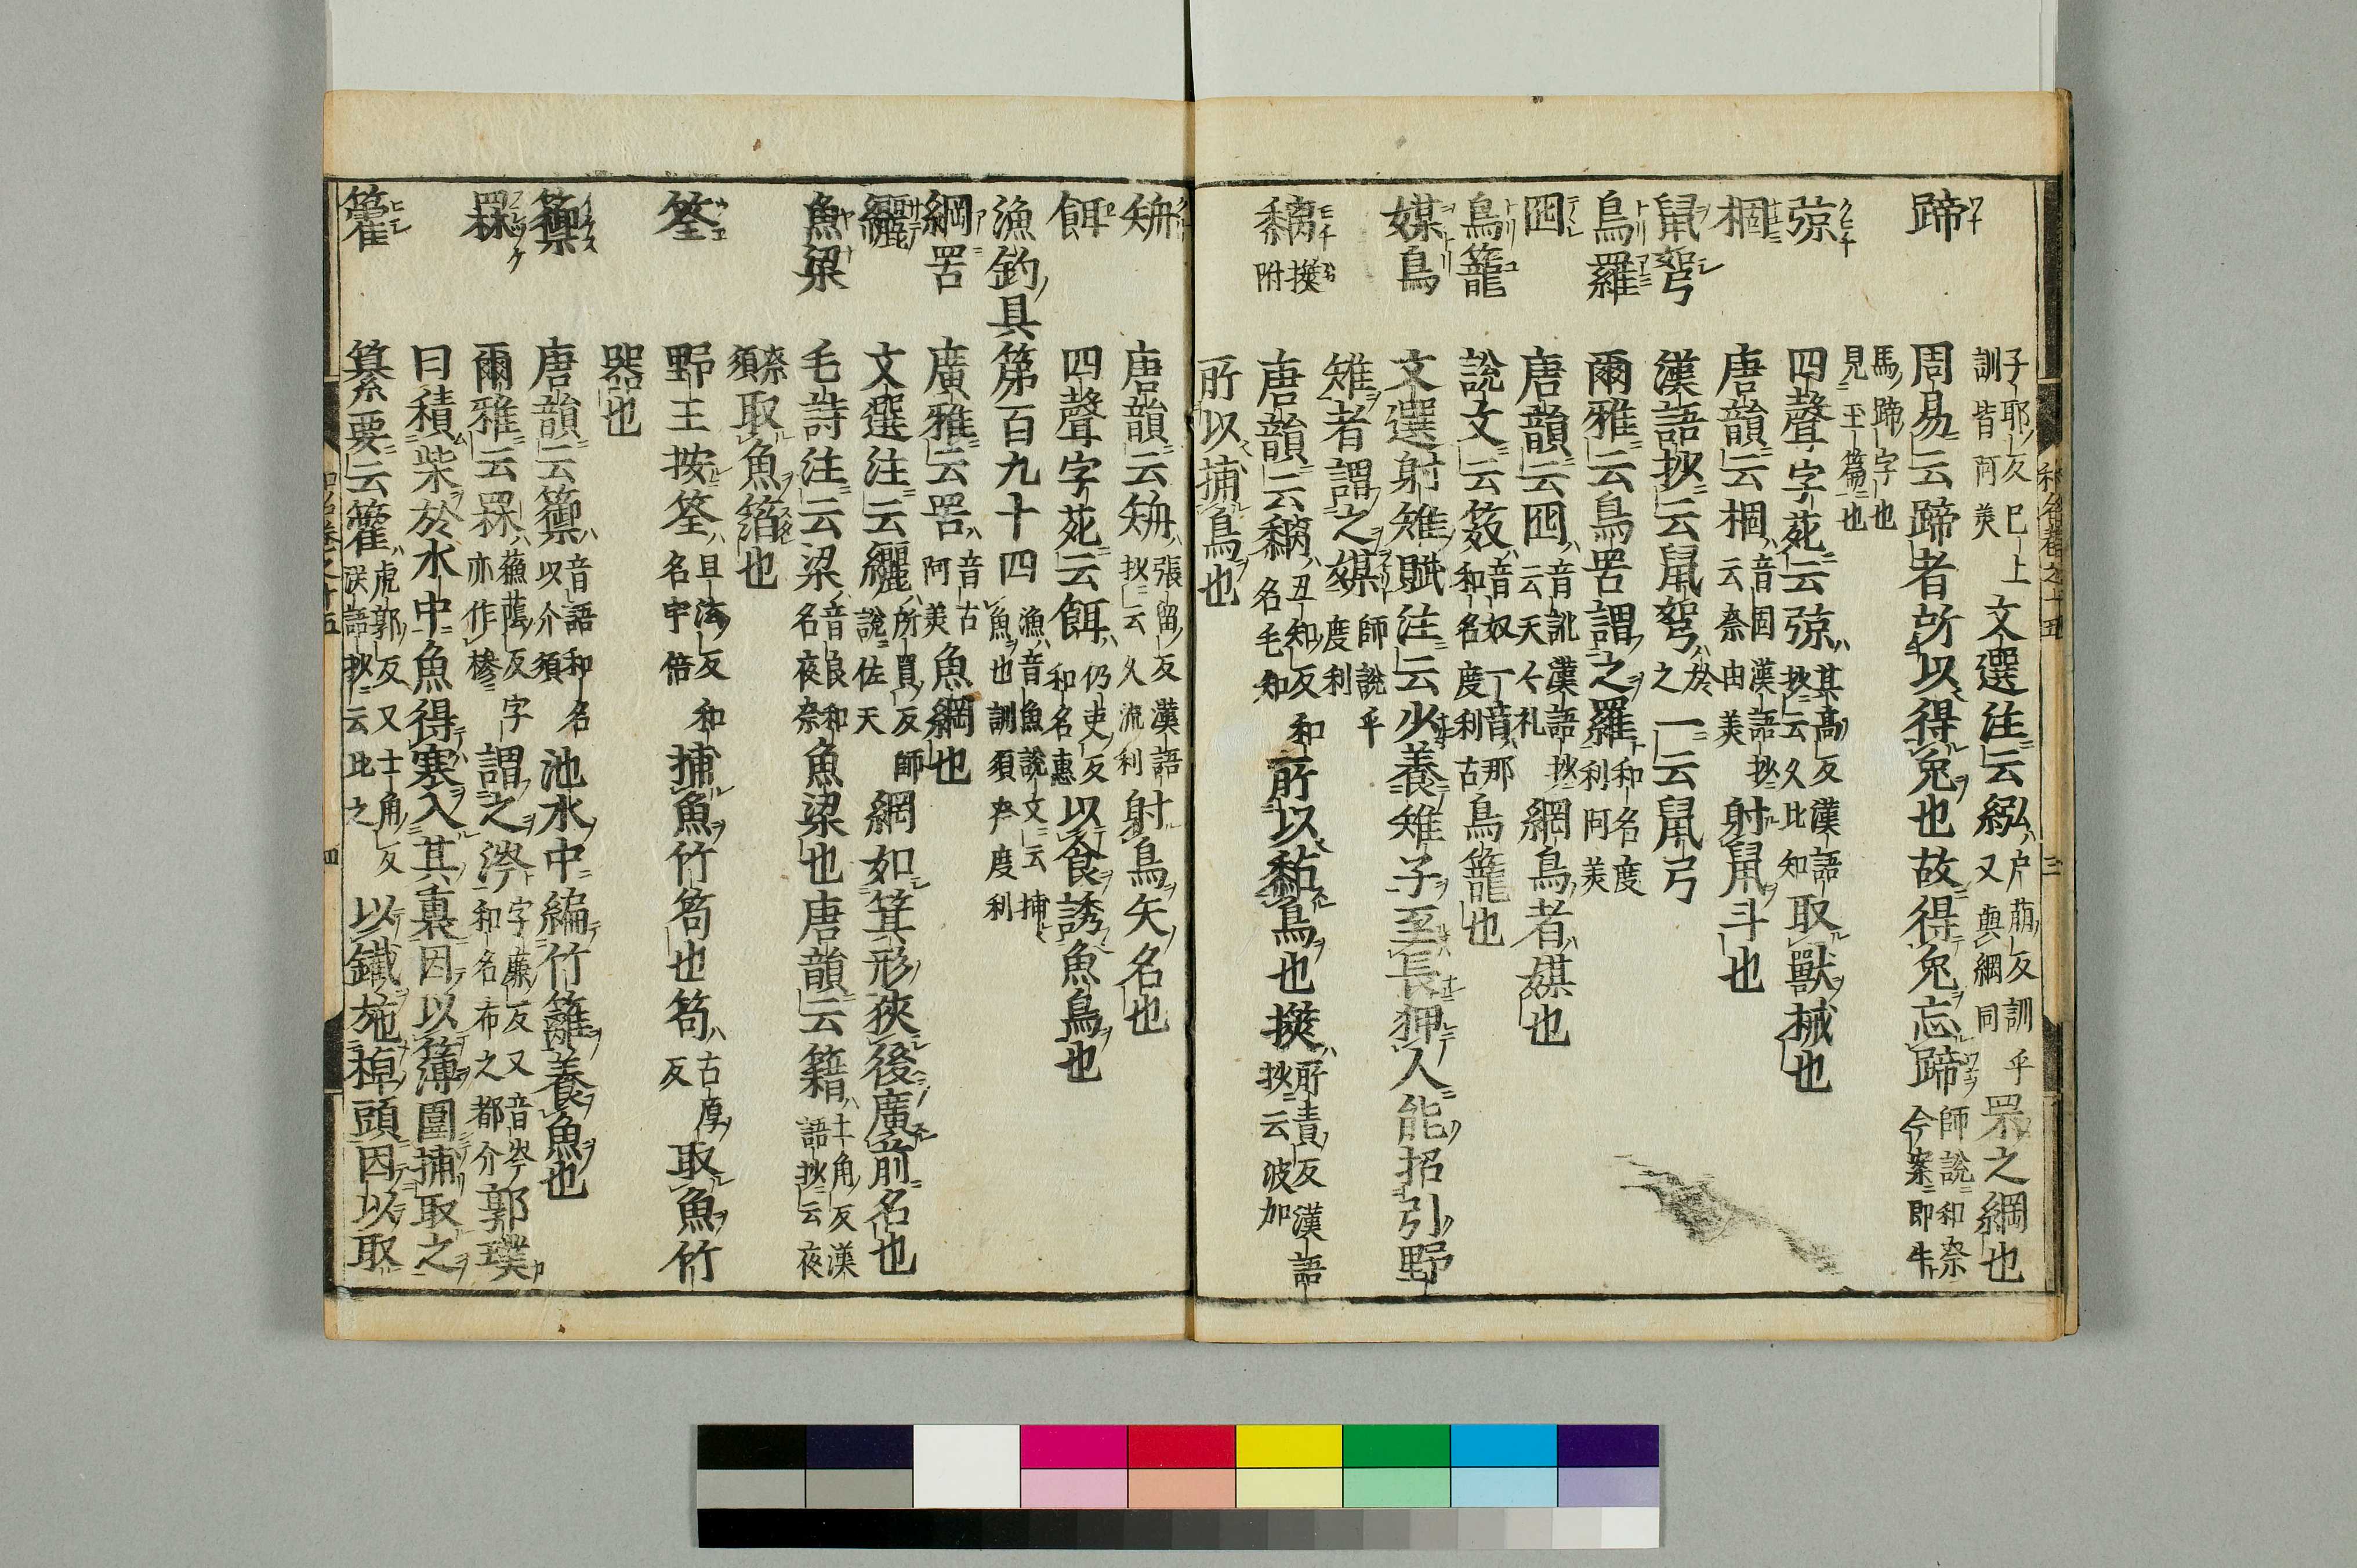 子耶反巳上訓皆阿美文選注云紭戸萠反訓乎又與綱同罘之綱也
蹄 周易云蹄者所以得兔也故得兔忘蹄師説和奈今案即牛
馬蹄字也見玉篇也
弶 四聲字苑云弶其亮反漢語抄云久比知取獸械也
棝 唐韻云棝音固漢語抄云奈由美射鼠斗也
鼠弩 漢語抄云鼠弩於之一云鼠弓
鳥羅 爾雅云鳥罟謂之羅和名度利阿美
囮 唐韻云囮音訛漢語抄云天々礼網鳥者媒也
鳥籠 説文云笯音奴一音那和名度利古鳥籠也
媒鳥 文選射雉賦注云少養雉子至長狎人能招引野
雉者謂之媒師説乎度利
黐擌附 唐韻云黐丑知反和名毛知所以黏鳥也擌所責反漢語抄云波加
所以捕鳥也
唐韻云 張留反漢語抄云久流利射鳥矢名也
餌 四聲字苑云餌仍吏反和名惠以食誘魚鳥也
漁釣具第百九十四漁音魚説文云捕魚也訓須奈度利
網罟 廣雅云罟音古阿美魚網也
纚 文選注云纚所買反師説佐天網如箕形狹後廣前名也
魚梁 毛詩注云梁音良和名夜奈魚梁也唐韻云籍士角反漢語抄云夜
奈須取魚箔也
筌 野王按筌且泫反和名宇倍捕魚竹笱也笱古厚反取魚竹
器也
篽 唐韻云篽音語和名以介須池水中編竹籬養魚也
罧 爾雅云罧 字亦作椮謂之涔字廉反又音岑和名布之都介郭璞
曰積柴於水中魚得寒入其裏因以簿圍捕取之
籗 纂要云籗虎郭反又士角反漢語抄云比之以鐵施棹頭因以取